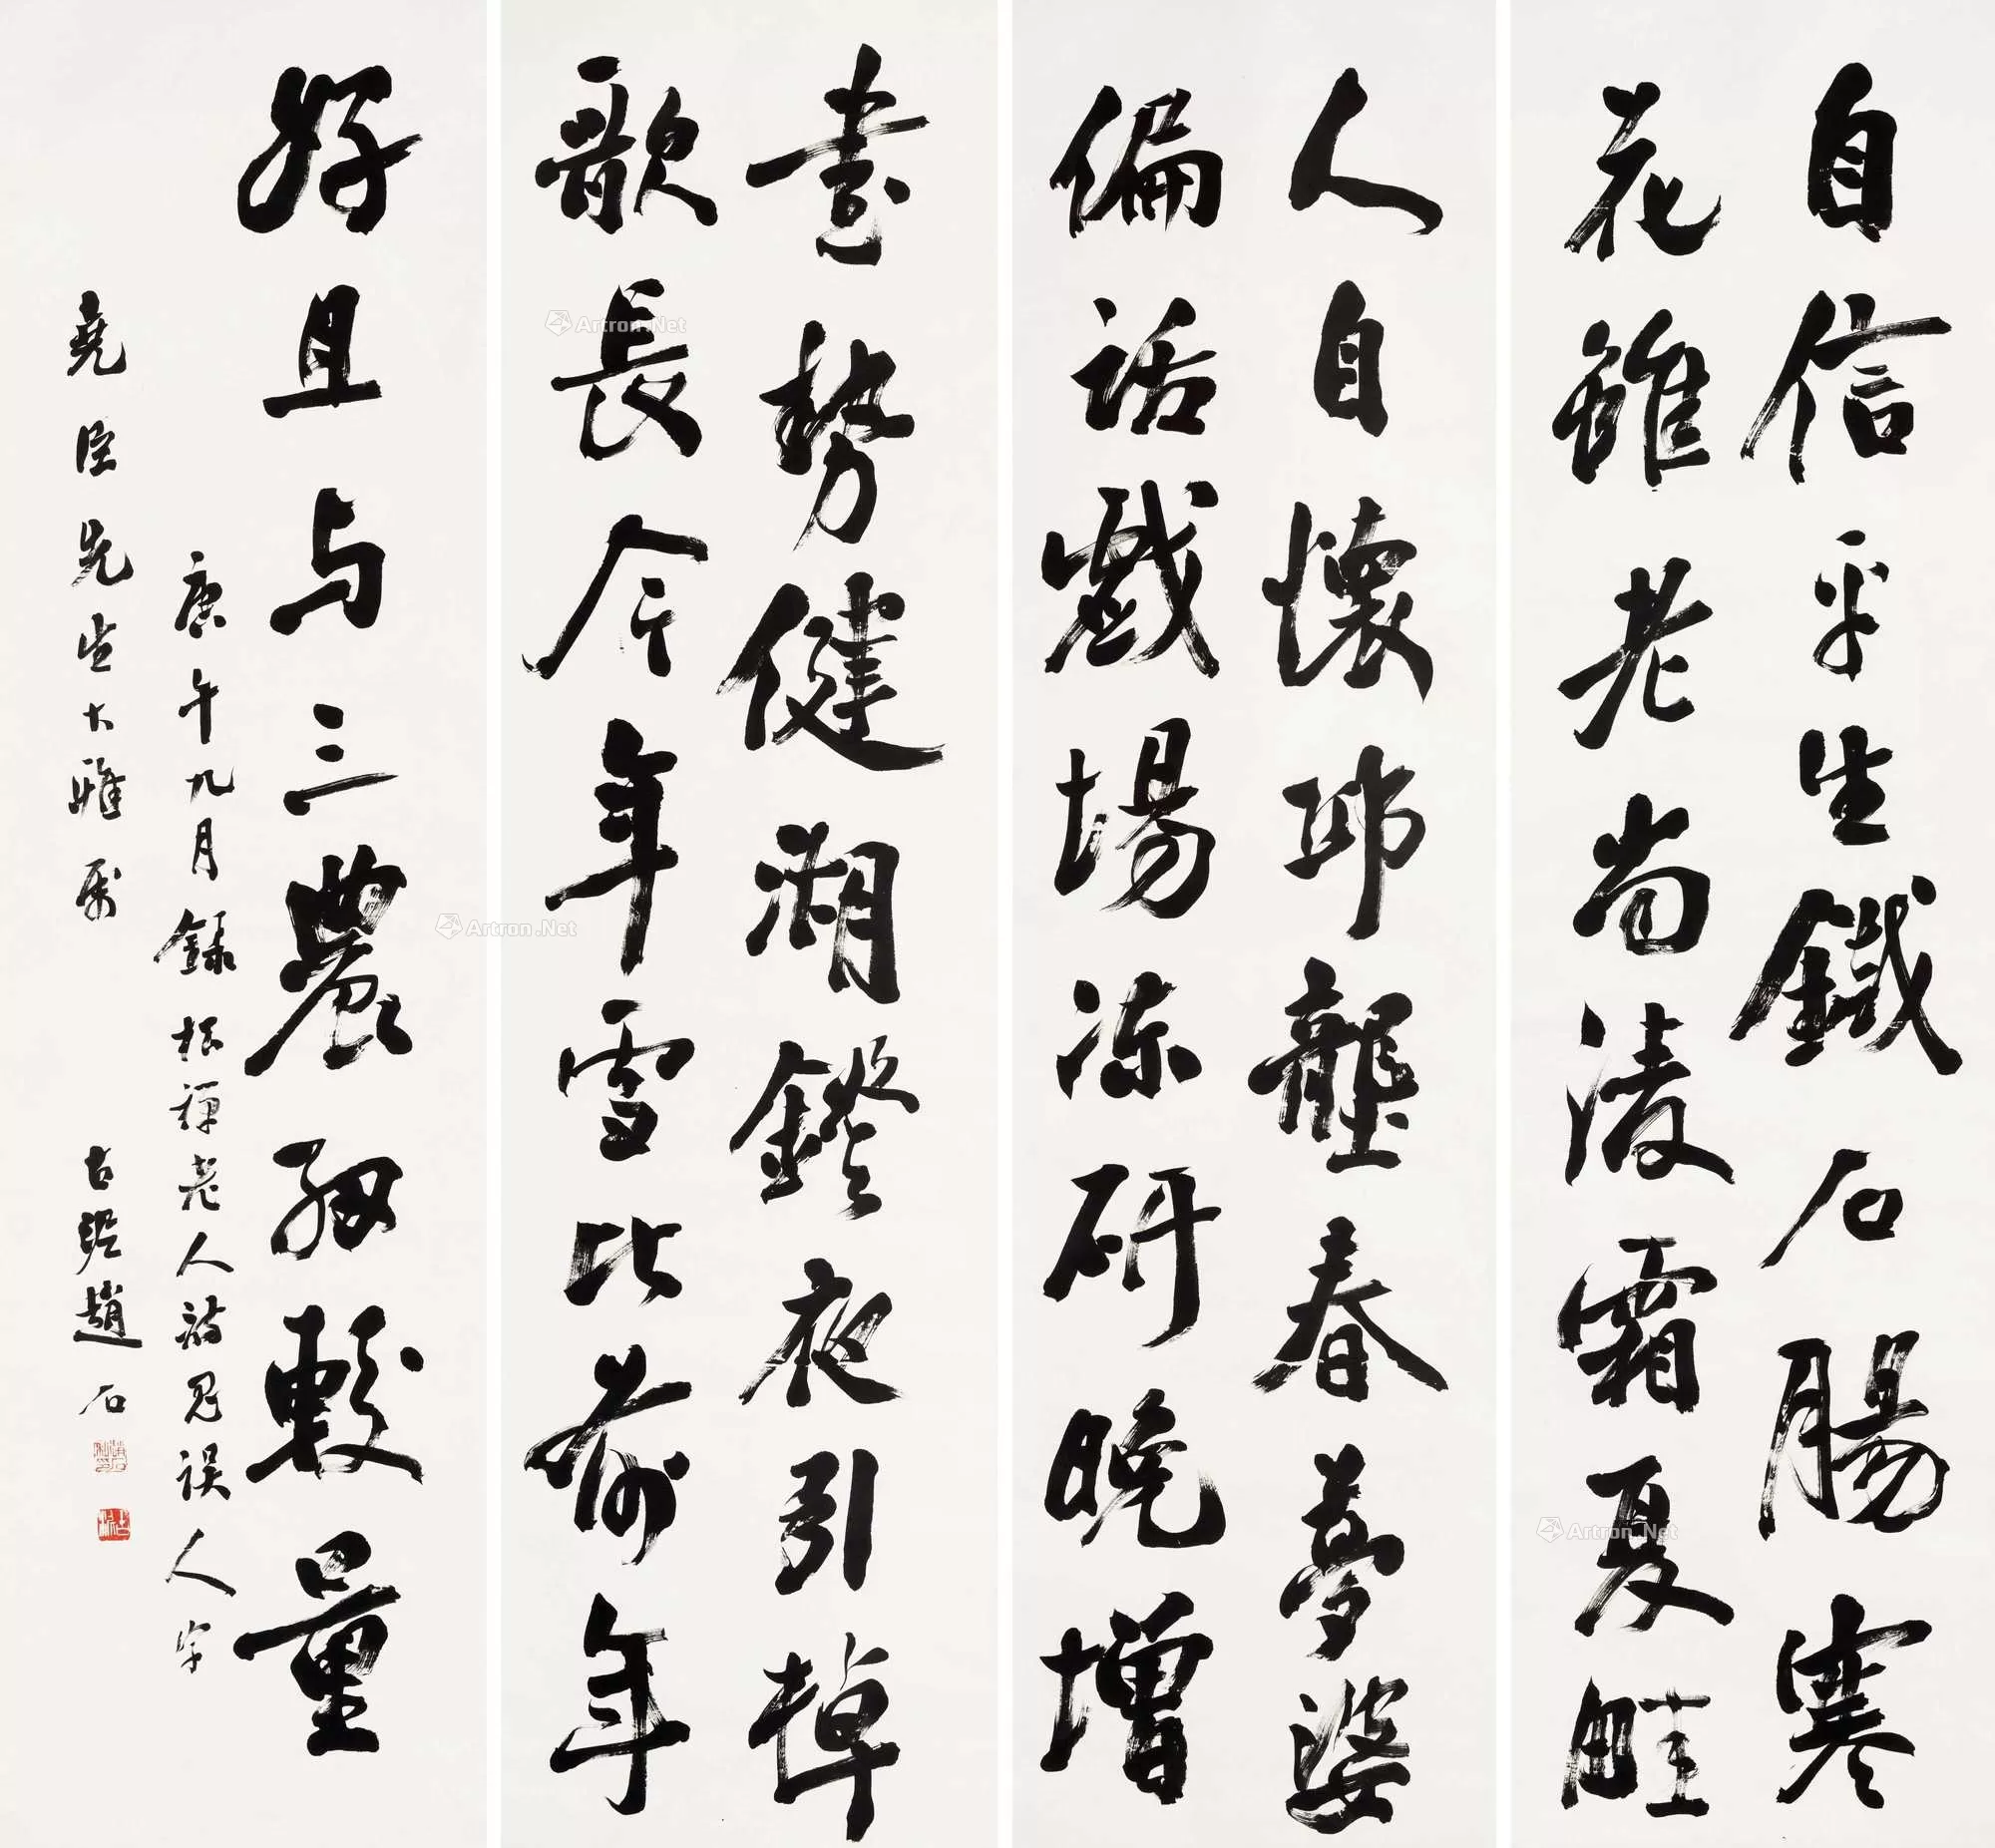 自信平生鐵石腸寒
花雖老尚淩霜夏畦
人自懷邛壟春夢婆
偏話戲場凍研晚增
書勢健湖鐙夜引棹
歌長今年雪比前年
好且与三農細較量
庚午九月錄松禪老人詩忍誤人字
堯臣先生大雅屬
古泥趙石
Artron.Net
Artron.Net
Artron.Net